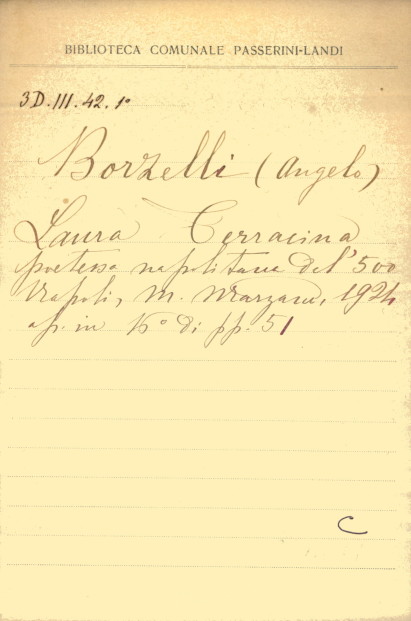 BIBLIOTECA COMUNALE PASSERINI-LANDI
3D.III.42.1º
Borzelli (Angelo)
Laura Terracina
poetessa napolitana del '500
Napoli, M. Marzano, 1924
op. in 16º di pp. 51
C